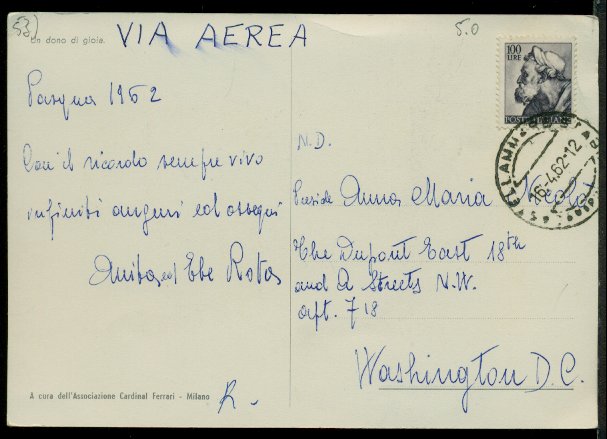 53)
Un dono di gioia.
VIA AEREA
5.0
100
LIRE
POSTE ITALIANE
16.4.62-12
Pasqua 1962
Con il ricordo sempre vivo
infiniti auguri ed ossequi
Anita ed Ebe Rotas
N.D.
Preside Anna Maria
The Dupont East 18th
and Q Streets N.W.
apt. 718
Washington D.C.
A cura dell'Associazione Cardinal Ferrari - Milano
R.